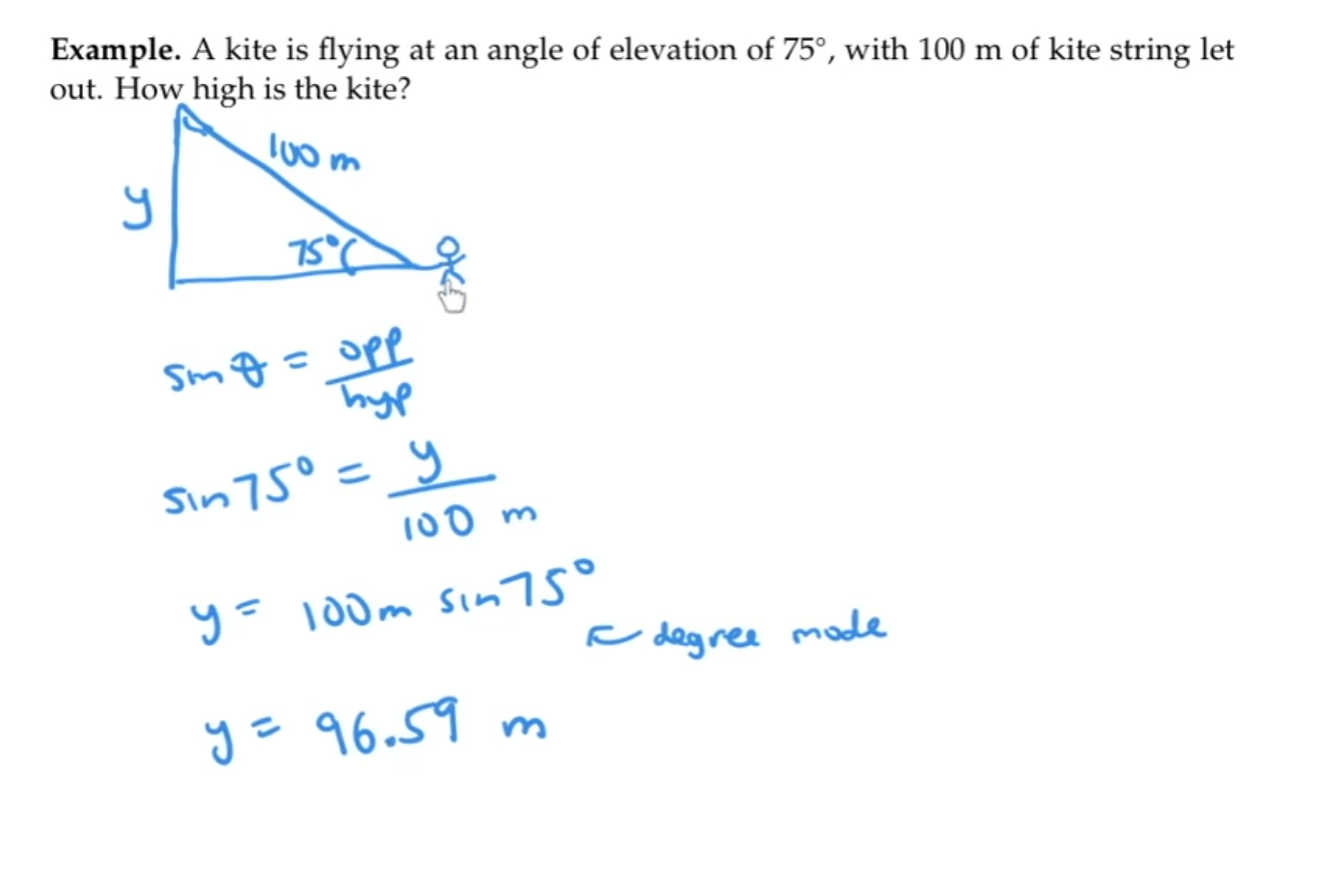 Example. A kite is flying at an angle of elevation of 75°, with 100 m of kite string let
out. How high is the kite?
100 m
y
75°
sin θ = opp/hyp
sin 75° = y/100 m
y = 100m sin 75°
← degree mode
y = 96.59 m